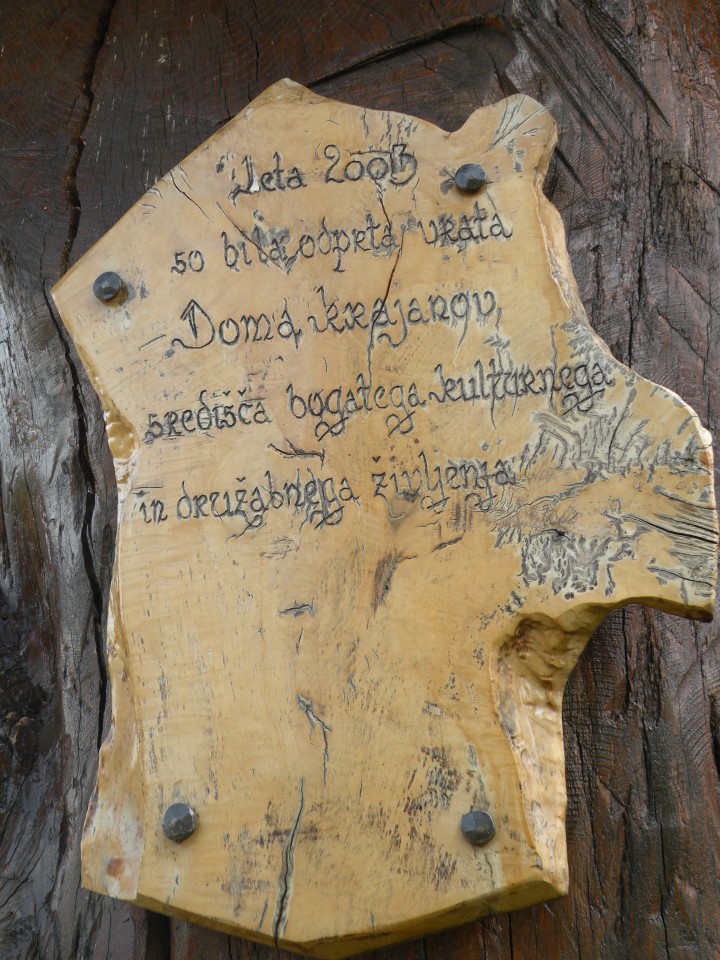 Leta 2003
so bila odprta vrata
Doma krajanov,
središča bogatega kulturnega
in družabnega življenja